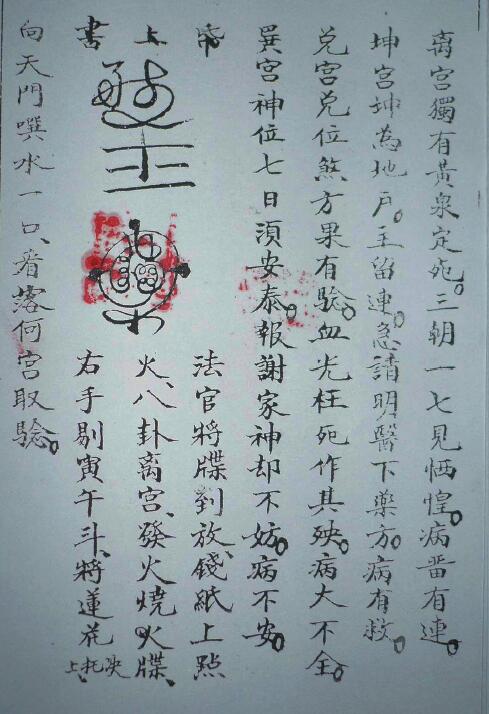 离宫獨有黃泉定死。三朝一七見恓惶。病畨有連。
坤宫坤為地户。主留連。急請明醫下藥方。病有救。
兑宫兑位煞方果有驗。血光枉死作其殃。病大不全。
巽宫神位七日湏安泰。報謝家神却不妨。病不安。
帋上書
法官將牒到放、錢紙上㸃
火、八卦离宫、發火燒火牒、
右手剔寅午斗、將蓮花决托上、
向天門噀水一口、看落何宫取驗。